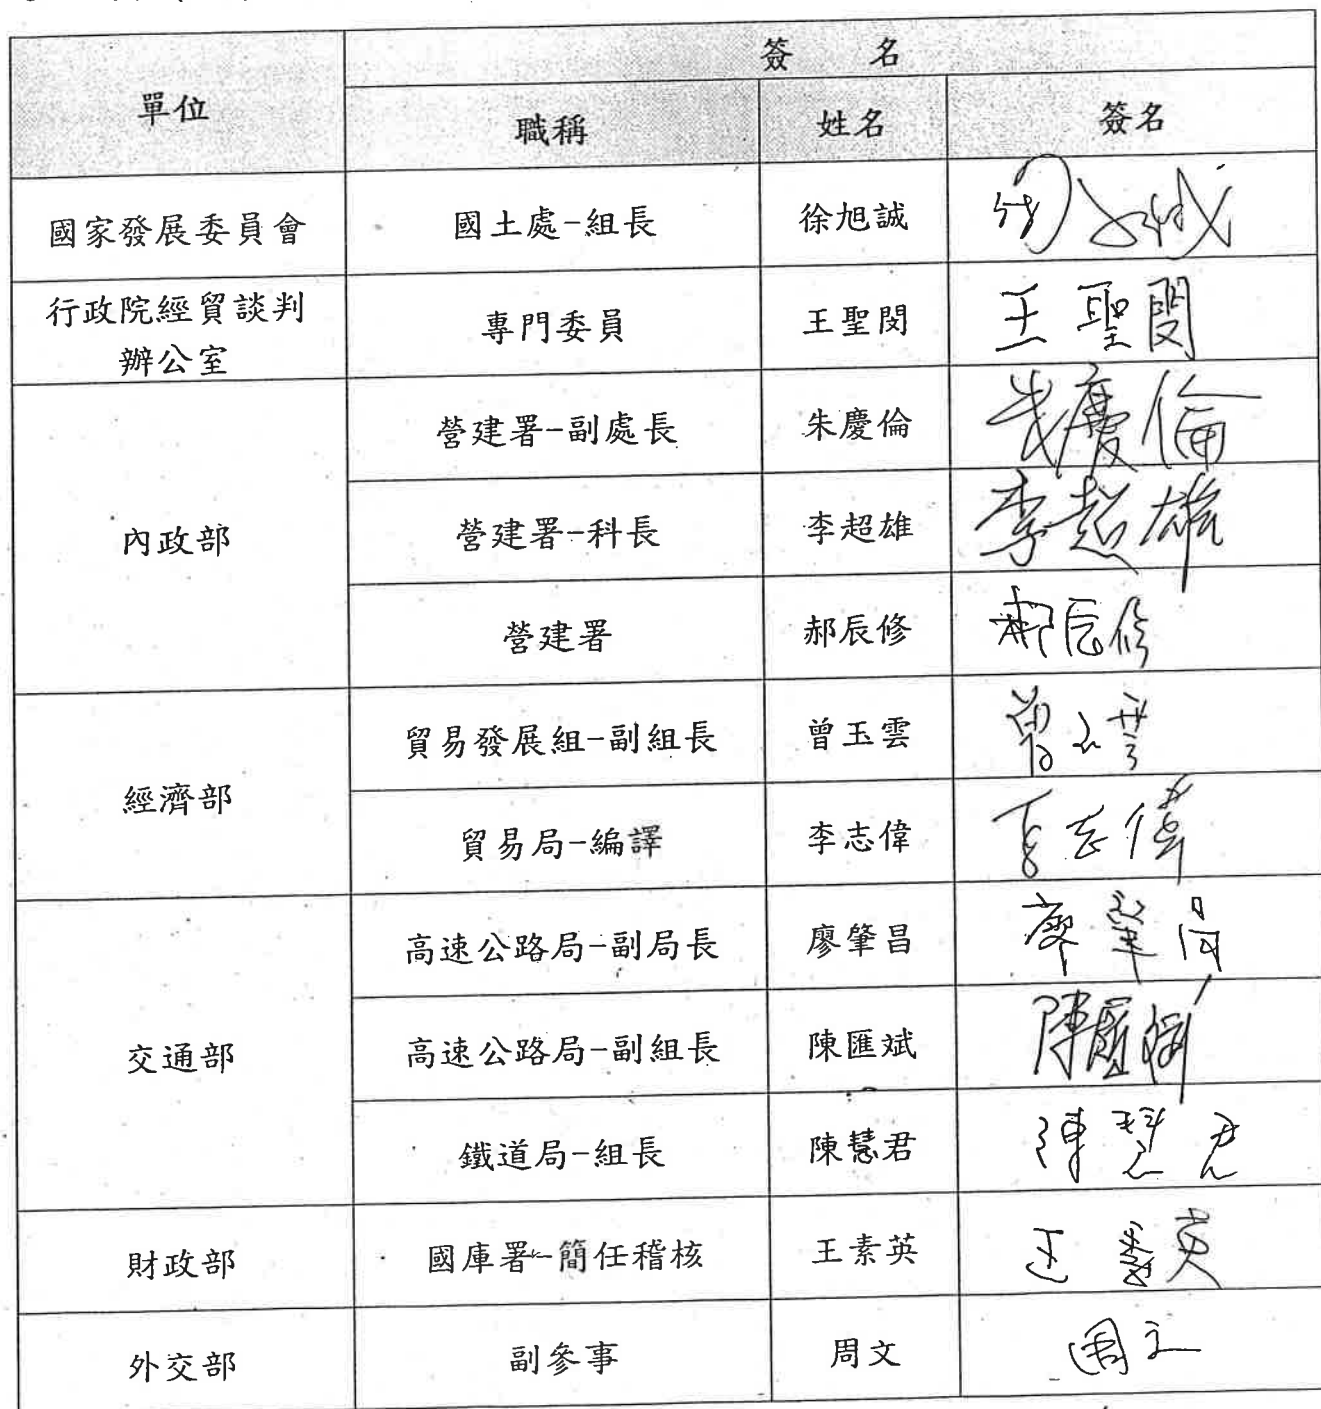 簽 名
單位
職稱 姓名 簽名
國家發展委員會 國土處-組長 徐旭誠
行政院經貿談判
辦公室 專門委員 王聖閔 王聖閔
內政部
營建署-副處長 朱慶倫 朱慶倫
營建署-科長 李超雄 李超雄
營建署 郝辰修 郝辰修
經濟部
貿易發展組-副組長 曾玉雲 曾玉雲
貿易局-編譯 李志偉 李志偉
交通部
高速公路局-副局長 廖肇昌 廖肇昌
高速公路局-副組長 陳匯斌 陳匯斌
鐵道局-組長 陳慧君 陳慧君
財政部 國庫署-簡任稽核 王素英 王素英
外交部 副參事 周文 周文